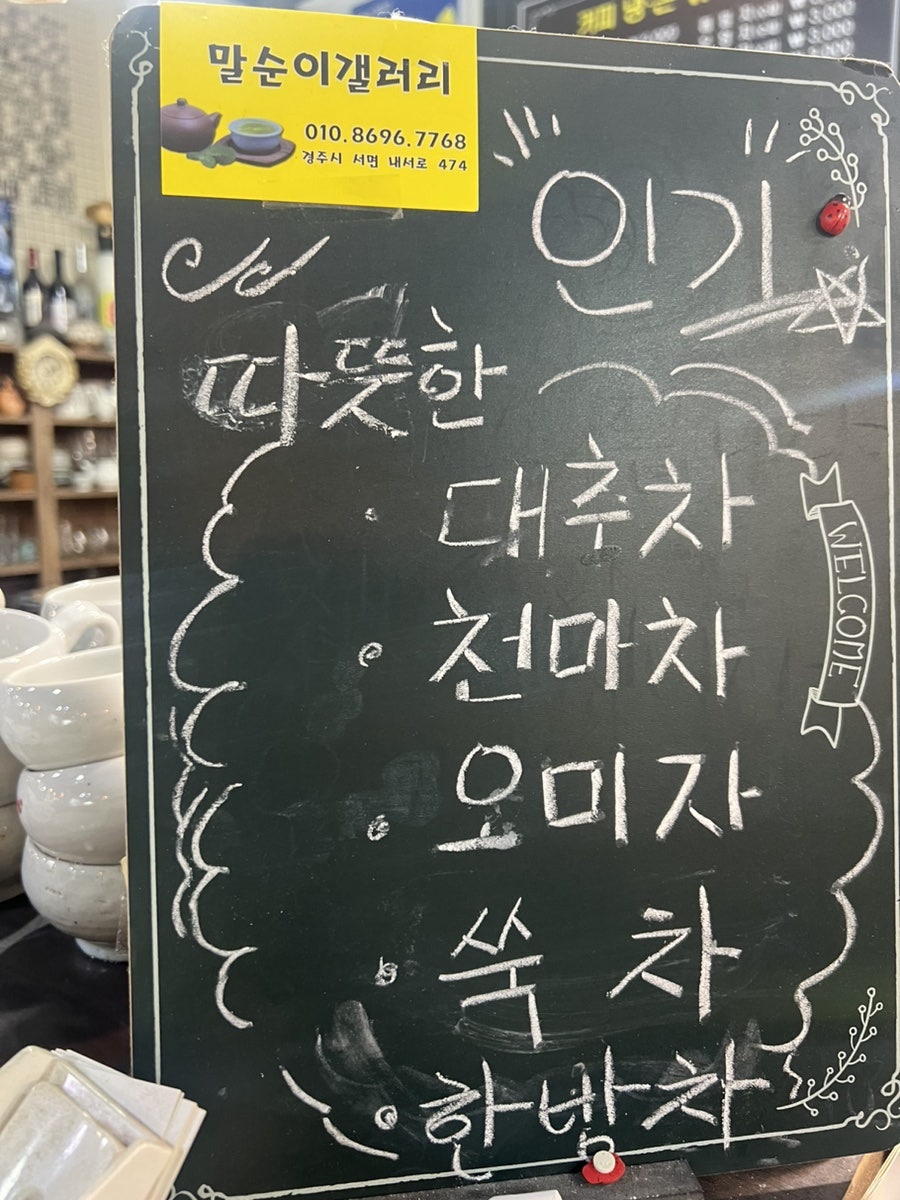 말순이갤러리
010.8696.7768
경주시 서면 내서로 474
인기
따뜻한
대추차
천마차
오미자
쑥 차
한방차
WELCOME